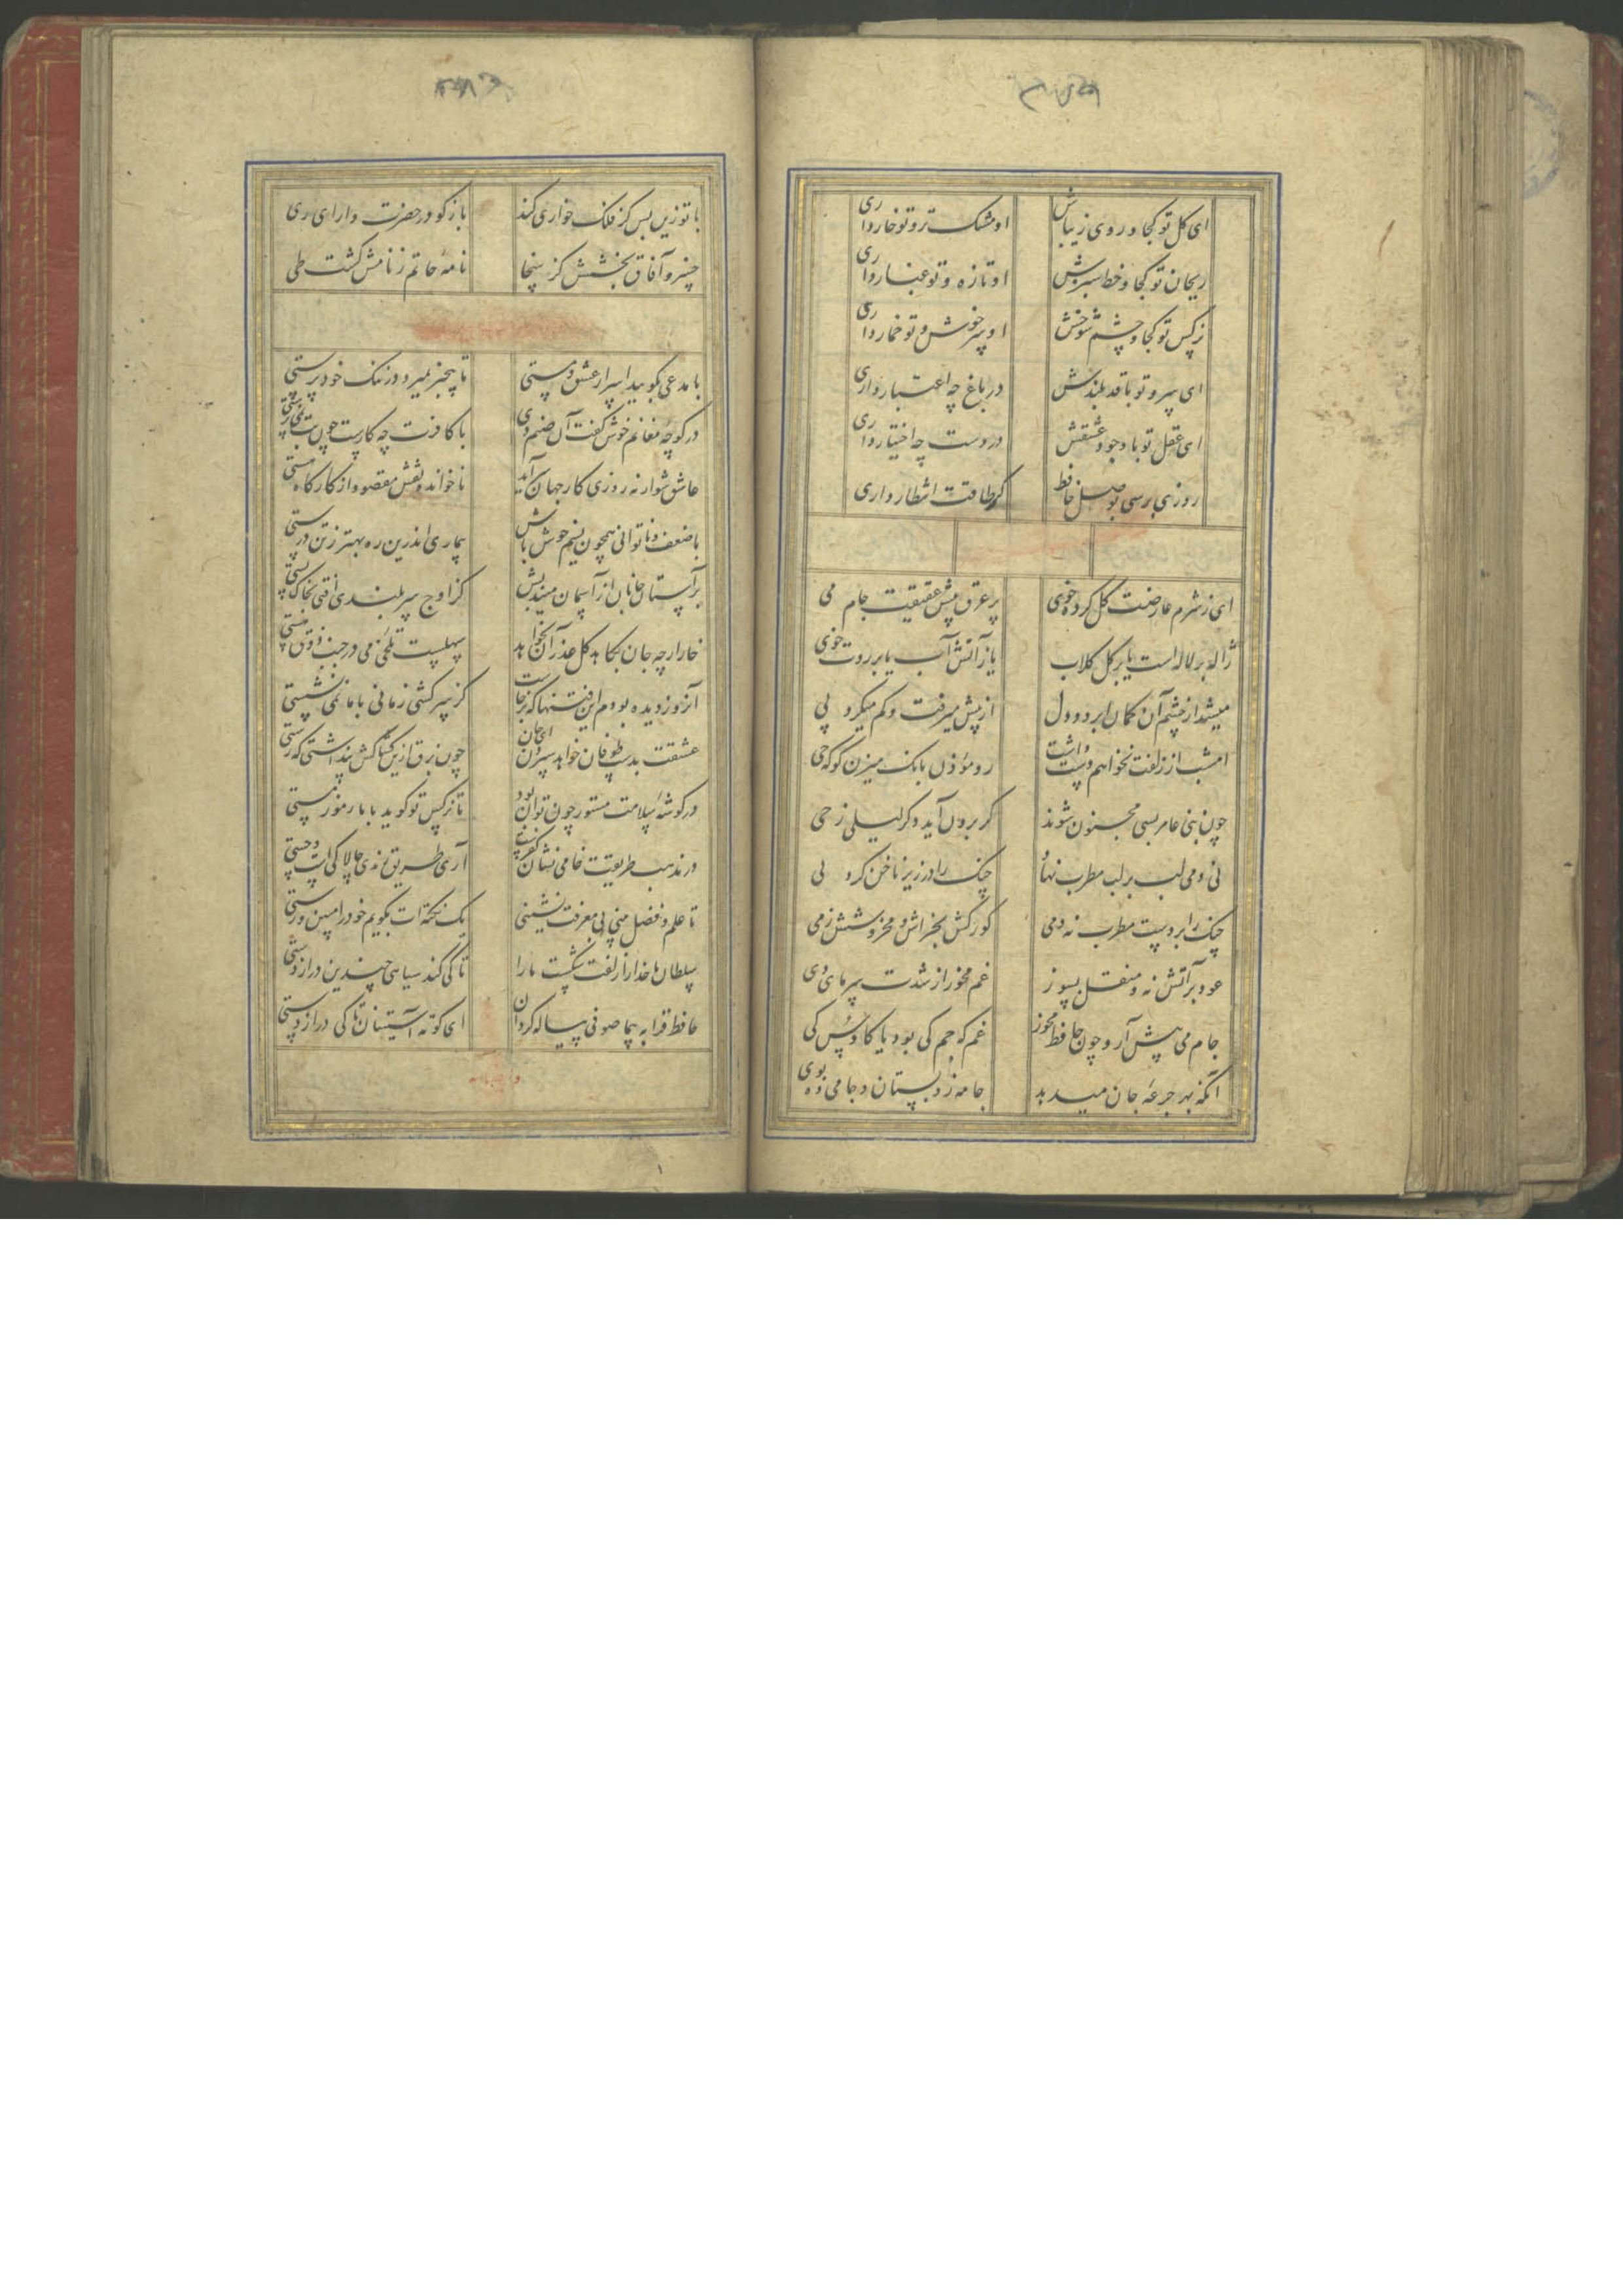 ای کل تو کجا و روی زیباش او مشک تر و تو خار داری
ریحان تو کجا و خط سبزش او تازه و تو غبار داری
نرکس تو کجا و چشم شوخش او سرخوش و تو خمار داری
ای سرو تو با قد بلندش در باغ چه اعتبار داری
ای عقل تو با وجود عشقش در دست چه اختیار داری
روزی برسی بوصل حافظ کر طاقت انتظار داری
ای ز شرم عارضت کل کرده خوی پر عرق پیش عقیقت جام می
ژاله بر لاله است یا بر کل کلاب یا ز آتش آب یا بر روت خوی
میشد از چشم آن کمان ابرو و دل از پیش میرفت و کم میکرد پی
امشب از زلفت نخواهم داشت دست رو مؤذن بانک میزن کو که حی
چون بنی عامر بسی مجنون شوند کر برون آید دکر لیلی ز حی
نی دمی لب بر لب مطرب نهاد چنک را در زیر ناخن کرد نی
چنک را بر دست مطرب نه دمی کو رکش بخراش و مخروشش ز می
عود بر آتش نه و منقل بسوز غم مخور از شدت سرمای دی
جام می پیش آر و چون حافظ مخور غم که جم کی بود یا کاوس کی
آنکه بهر جرعه جان میدهد جامه زو بستان و جامی ده بوی
با تو زین پس کر فلک خواری کند باز کو در حضرت دارای ری
خسرو آفاق بخشش کز سخا نامه حاتم ز نامش کشت طی
با مدعی بکویید اسرار عشق و مستی تا بیخبر بمیرد در رنک خودپرستی
در کوچه مغانم خوش کفت آن صنم دی با کافرت چه کارست چون بت نمی پرستی
عاشق شو ار نه روزی کار جهان آید ناخوانده نقش مقصود از کارکاه هستی
با ضعف و ناتوانی همچون نسیم خوش باش بیماری اندرین ره بهتر ز تن درستی
بر آستان جانان از آسمان میندیش کز اوج سربلندی افتی بخاک پستی
خار ارچه جان بکاهد کل عذر آن بخواهد سهلست تلخی می در جنب ذوق مستی
آن روز دیده بودم این فتنها که برخاست کز سرکشی زمانی با ما نمی نشستی
عشقت بدست طوفان خواهد سپردن ای جان چون برق ازین کشاکش پنداشتی که رستی
در کوشه سلامت مستور چون توان بود تا نرکس تو کوید با ما رموز مستی
در مذهب طریقت خامی نشان کفرست آری طریق رندی چالاکی است و چستی
تا علم و فضل بینی بی معرفت نشینی یک نکته ات بکویم خود را مبین و رستی
سلطان ما خدا را زلفت شکست ما را تا کی کند سیاهی چندین دراز دستی
حافظ قرابه پیما صوفی پیاله کردان ای کوته آستینان تا کی دراز دستی